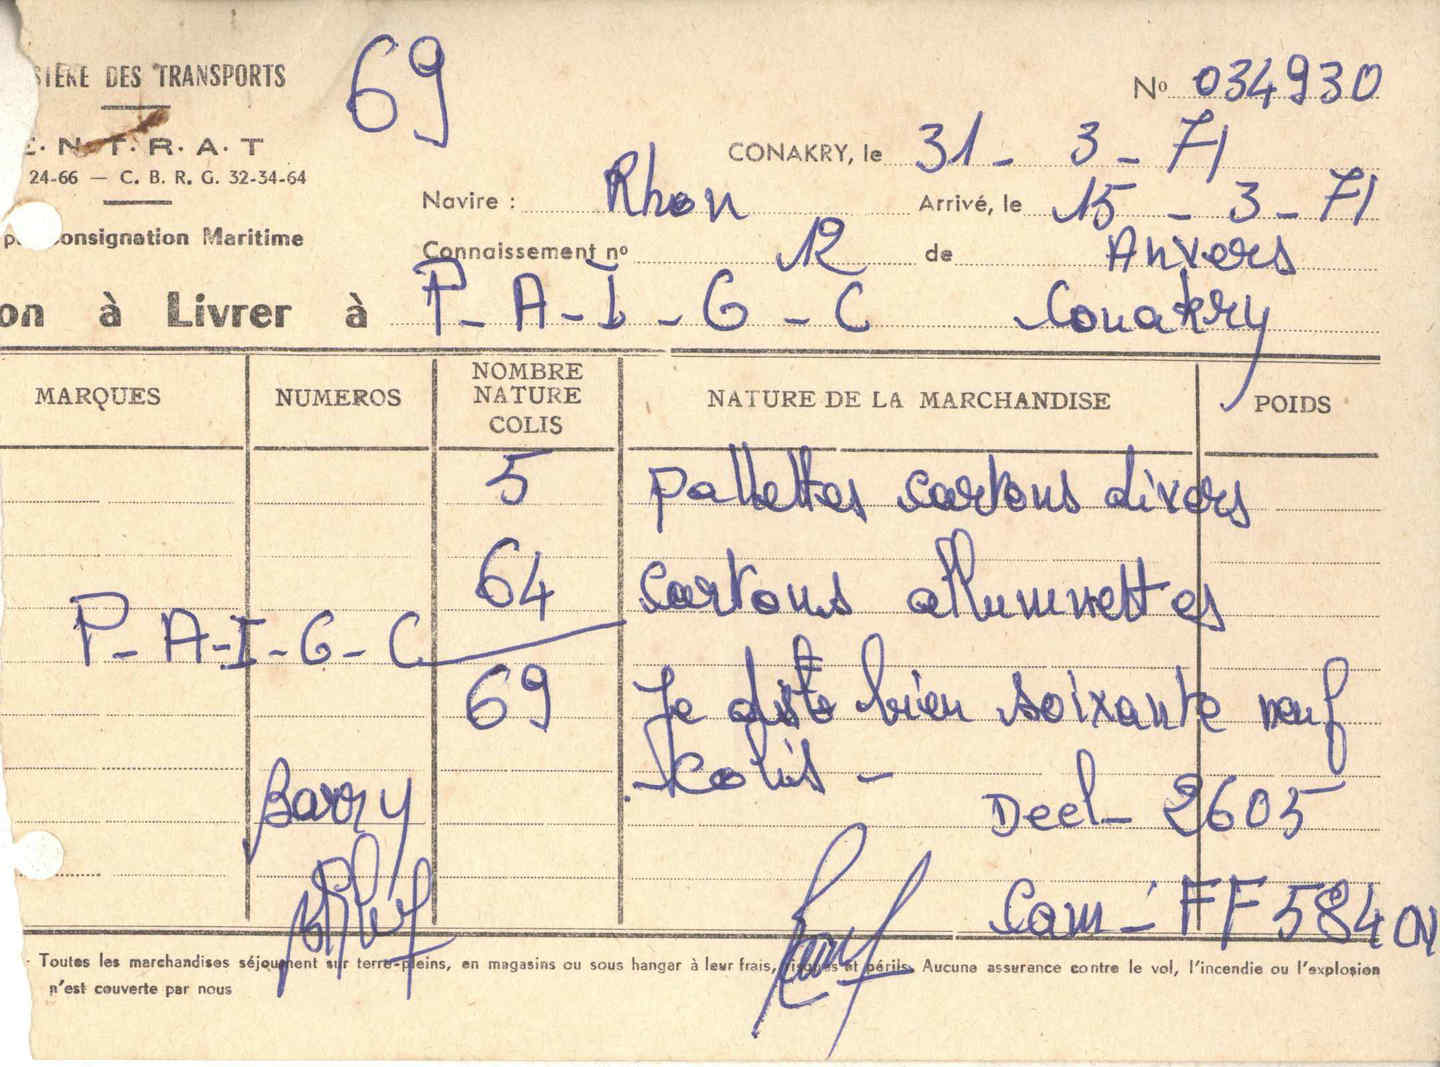 69
STÈRE DES TRANSPORTS
Nº 034930
E. N. T. R. A. T
CONAKRY, le 31 - 3 - 71
24-66 — C. B. R. G. 32-34-64
Navire : Rhon Arrivé, le 15 - 3 - 71
onsignation Maritime
Connaissement nº 12 de Anvers
on à Livrer à P - A - I - G - C Conakry
MARQUES NUMEROS NOMBRE NATURE COLIS NATURE DE LA MARCHANDISE POIDS
5 pallettes cartons divers
64 cartons allummettes
P - A - I - G - C
69 Je diste bien soixante neuf
colis -
Barry
Decl - 2605
Cam - FF 584 ON
Toutes les marchandises séjournent sur terre-pleins, en magasins ou sous hangar à leur frais, risques et périls. Aucune assurance contre le vol, l'incendie ou l'explosion
n'est couverte par nous